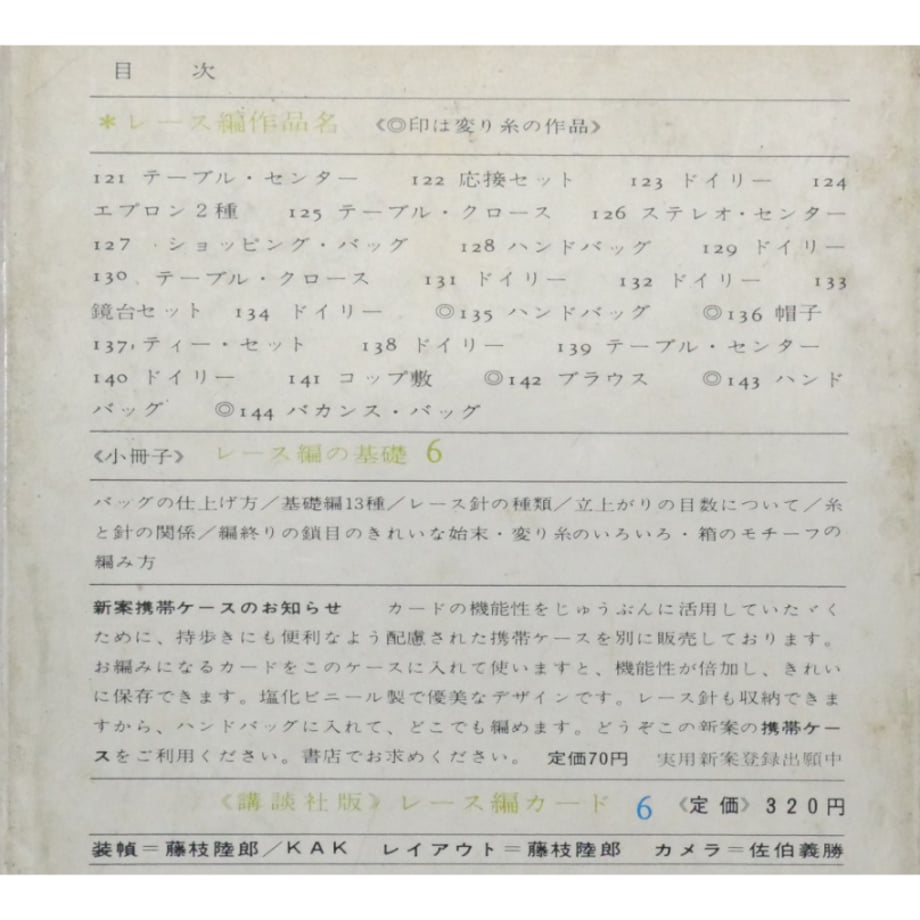 目　次
＊レース編作品名　《◎印は変り糸の作品》
121 テーブル・センター　122 応接セット　123 ドイリー　124
エプロン2種　125 テーブル・クロース　126 ステレオ・センター
127 ショッピング・バッグ　128 ハンドバッグ　129 ドイリー
130 テーブル・クロース　131 ドイリー　132 ドイリー　133
鏡台セット　134 ドイリー　◎135 ハンドバッグ　◎136 帽子
137 ティー・セット　138 ドイリー　139 テーブル・センター
140 ドイリー　141 コップ敷　◎142 ブラウス　◎143 ハンド
バッグ　◎144 バカンス・バッグ
《小冊子》　レース編の基礎 6
バッグの仕上げ方／基礎編13種／レース針の種類／立上がりの目数について／糸
と針の関係／編終りの鎖目のきれいな始末・変り糸のいろいろ・箱のモチーフの
編み方
新案携帯ケースのお知らせ　カードの機能性をじゅうぶんに活用していたゞく
ために、持歩きにも便利なよう配慮された携帯ケースを別に販売しております。
お編みになるカードをこのケースに入れて使いますと、機能性が倍加し、きれい
に保存できます。塩化ビニール製で優美なデザインです。レース針も収納できま
すから、ハンドバッグに入れて、どこでも編めます。どうぞこの新案の携帯ケー
スをご利用ください。書店でお求めください。　定価70円　実用新案登録出願中
《講談社版》レース編カード　6　《定価》320円
装幀＝藤枝陸郎／KAK　レイアウト＝藤枝陸郎　カメラ＝佐伯義勝